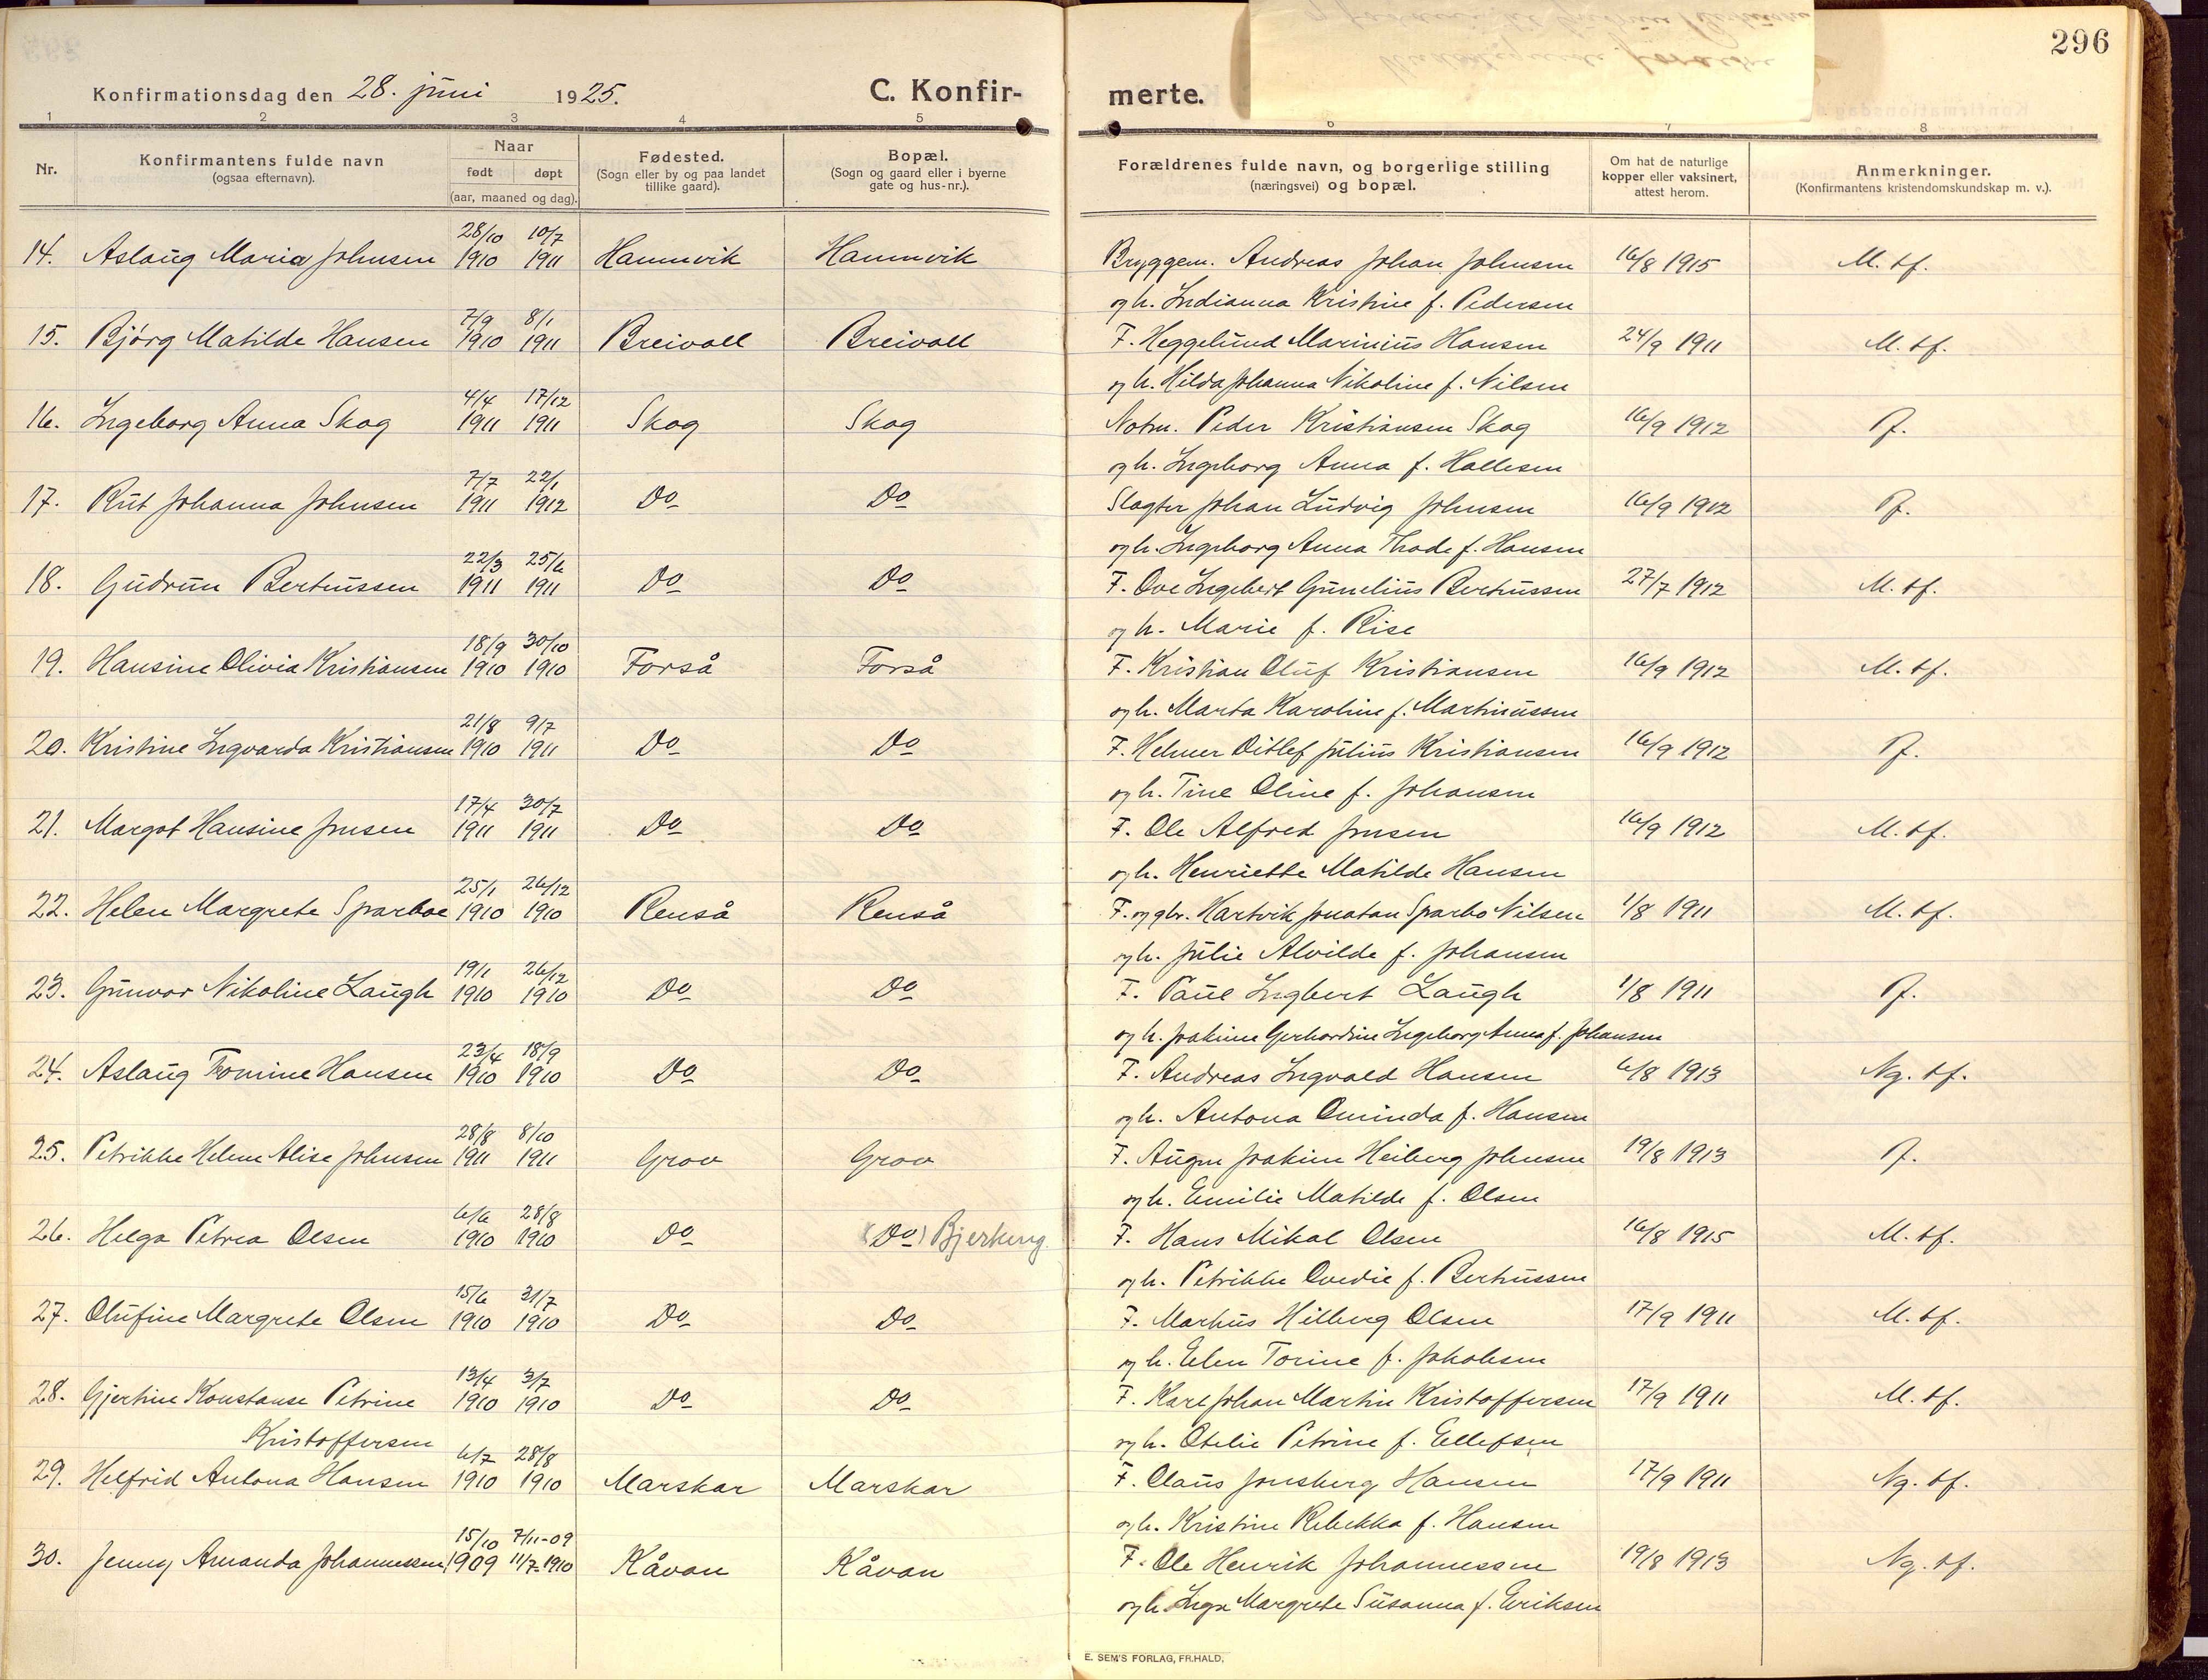 296
Konfirmationsdag den 28. juni 1925.
C. Konfir-
merte.
1 2 3 4 5 6 7 8
Nr.
Konfirmantens fulde navn
(ogsaa efternavn).
Naar
født døpt
(aar, maaned og dag).
Fødested.
(Sogn eller by og paa landet
tillike gaard).
Bopæl.
(Sogn og gaard eller i byerne
gate og hus-nr.).
Forældrenes fulde navn, og borgerlige stilling
(næringsvei) og bopæl.
Om hat de naturlige
kopper eller vaksinert,
attest herom.
Anmerkninger.
(Konfirmantens kristendomskundskap m. v.).
28/10 10/7
14. Aslaug Maria Johnsen 1910 1911 Hamnvik Hamnvik Bryggem. Andreas Johan Johnsen 16/8 1915 M. tf.
og h. Indianna Kristine f. Pedersen
7/9 8/1
15. Bjørg Matilde Hansen 1910 1911 Breivoll Breivoll F. Heggelund Marinius Hansen 24/9 1911 M. tf.
og h. Hilda Johanna Nikoline f. Nilsen
4/4 17/12
16. Ingeborg Anna Skog 1911 1911 Skog Skog Notm. Peder Kristiansen Skog 16/9 1912
og h. Ingeborg Anna f. Hallesen
7/7 22/1
17. Rut Johanna Johnsen 1911 1912 Do Do Slagter Johan Ludvig Johnsen 16/9 1912
og h. Ingeborg Anna Thode f. Hansen
22/3 25/6
18. Gudrun Bertnussen 1911 1911 Do Do F. Ove Ingebert Gunelius Bertnussen 27/7 1912 M. tf.
og h. Marie f. Rise
18/9 30/10
19. Hansine Olivia Kristiansen 1910 1910 Forså Forså F. Kristian Oluf Kristiansen 16/9 1912 M. tf.
og h. Marta Karoline f. Martinussen
21/8 9/7
20. Kristine Ingvarda Kristiansen 1910 1911 Do Do F. Helmer Ditlef Julius Kristiansen 16/9 1912
og h. Tine Oline f. Johansen
17/4 30/7
21. Margot Hansine Jensen 1911 1911 Do Do F. Ole Alfred Jensen 16/9 1912 M. tf.
og h. Henriette Matilde Hansen
25/1 26/12
22. Helen Margrete Sparboe 1910 1910 Renså Renså F. og gbr. Hartvik Jonatan Sparbo Nilsen 1/8 1911 M. tf.
og h. Julie Alvilde f. Johansen
19/1 26/12
23. Gunvor Nikoline Laugh 1910 1910 Do Do F. Paul Ingbert Laugh 1/8 1911
og h. Joakime Gerhardine Ingeborg Anna f. Johansen
23/4 18/9
24. Aslaug Tomine Hansen 1910 1910 Do Do F. Andreas Ingvald Hansen 6/8 1913 Ng. tf.
og h. Antona Ominda f. Hansen
28/8 8/10
25. Petrikke Helene Alise Johnsen 1911 1911 Grov Grov F. Augen Joakim Heiberg Johnsen 19/8 1913
og h. Emilie Matilde f. Olsen
6/6 28/8
26. Helga Petrea Olsen 1910 1910 Do (Do) Bjerkeng. F. Hans Mikal Olsen 16/8 1915 M. tf.
og h. Petrikke Ovedie f. Bertnussen
15/6 31/7
27. Olufine Margrete Olsen 1910 1910 Do Do F. Markus Hilberg Olsen 17/9 1911 M. tf.
og h. Elen Torine f. Jakobsen
13/4 3/7
28. Gjertine Konstanse Petrine 1910 1910 Do Do F. Karl Johan Martin Kristoffersen 17/9 1911 M. tf.
Kristoffersen og h. Otelie Petrine f. Ellefsen
6/7 28/8
29. Helfrid Antona Hansen 1910 1910 Marskar Marskar F. Claus Jensberg Hansen 17/9 1911 Ng. tf.
og h. Kristine Rebekka f. Hansen
15/10 7/11-09
30. Jenny Amanda Johannessen 1909 11/7-1910 Kåvan Kåvan F. Ole Henrik Johannessen 19/8 1913 Ng. tf.
og h. Inga Margrete Susanna f. Eriksen
E. SEM'S FORLAG, FR.HALD.